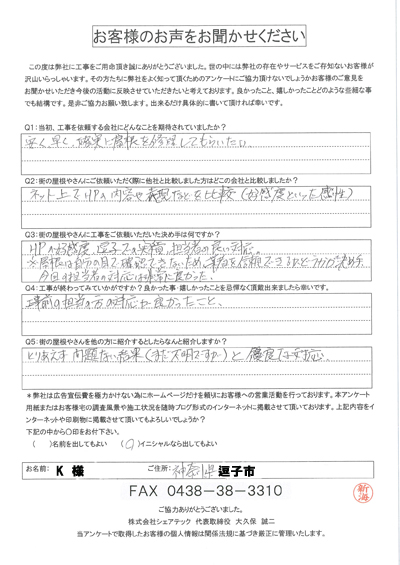 お客様のお声をお聞かせください
この度は弊社に工事をご用命頂き誠にありがとうございました。世の中には弊社の存在やサービスをご存知ないお客様が
沢山いらっしゃいます。その方たちに弊社をよく知って頂くためのアンケートにご協力頂けないでしょうかお客様のご意見を
お聞かせいただき今後の活動に反映させていただきたいと考えております。良かったこと、嬉しかったことどのような些細な事
でも結構です。是非ご協力お願い致します。出来るだけ具体的に書いて頂ければ幸いです。
Q1:当初、工事を依頼する会社にどんなことを期待されていましたか?
安く、早く、確実に屋根を修理してもらいたい
Q2:街の屋根やさんにご依頼いただく際に他社と比較しました方はどこの会社と比較しましたか?
ネット上でHPの内容や表現などを比較(好感度といった感性)
Q3:街の屋根やさんに工事をご依頼いただいた決め手は何ですか?
HPの好感度、逗子での実績、担当者の良い対応。
※屋根は自分の目で確認できないため、業者を信頼できるかどうかが決め手
今回の担当者の対応は非常に良かった。
Q4:工事が終わってみていかがですか?良かった事・嬉しかったことを忌憚なく頂戴出来ましたら幸いです。
事前の担当の方の対応が良かったこと、
Q5:街の屋根やさんを他の方に紹介するとしたらなんと紹介しますか?
とりあえず問題ない結果(まだ不明ですが)と優良な対応。
*弊社は広告宣伝費を極力かけない為にホームページだけを頼りにお客様への営業活動を行っております。本アンケート
用紙またはお客様宅の調査風景や施工状況を随時ブログ形式のインターネットに掲載させて頂いております。上記内容をイ
ンターネットや印刷物に掲載させて頂いてもよろしいでしょうか?
下記の中から〇印をお付下さい。
( )名前を出してもよい (〇)イニシャルなら出してもよい
お名前: K 様 ご住所: 神奈川県逗子市
FAX 0438-38-3310
新海
ご協力ありがとうございました。
株式会社シェアテック 代表取締役 大久保 誠二
当アンケートで取得したお客様の個人情報は関係法規に基づき厳正に管理いたします。